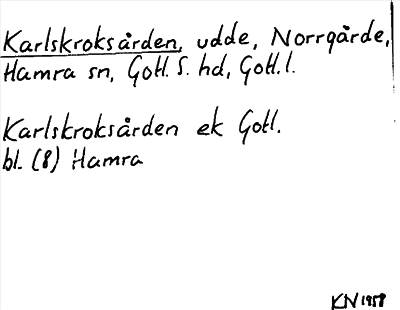 Karlskroksården, udde, Norrgårde,
Hamra sn, Gotl. S. hd, Gotl. l.
Karlskroksården ek Gotl.
bl. (8) Hamra
KN 1958